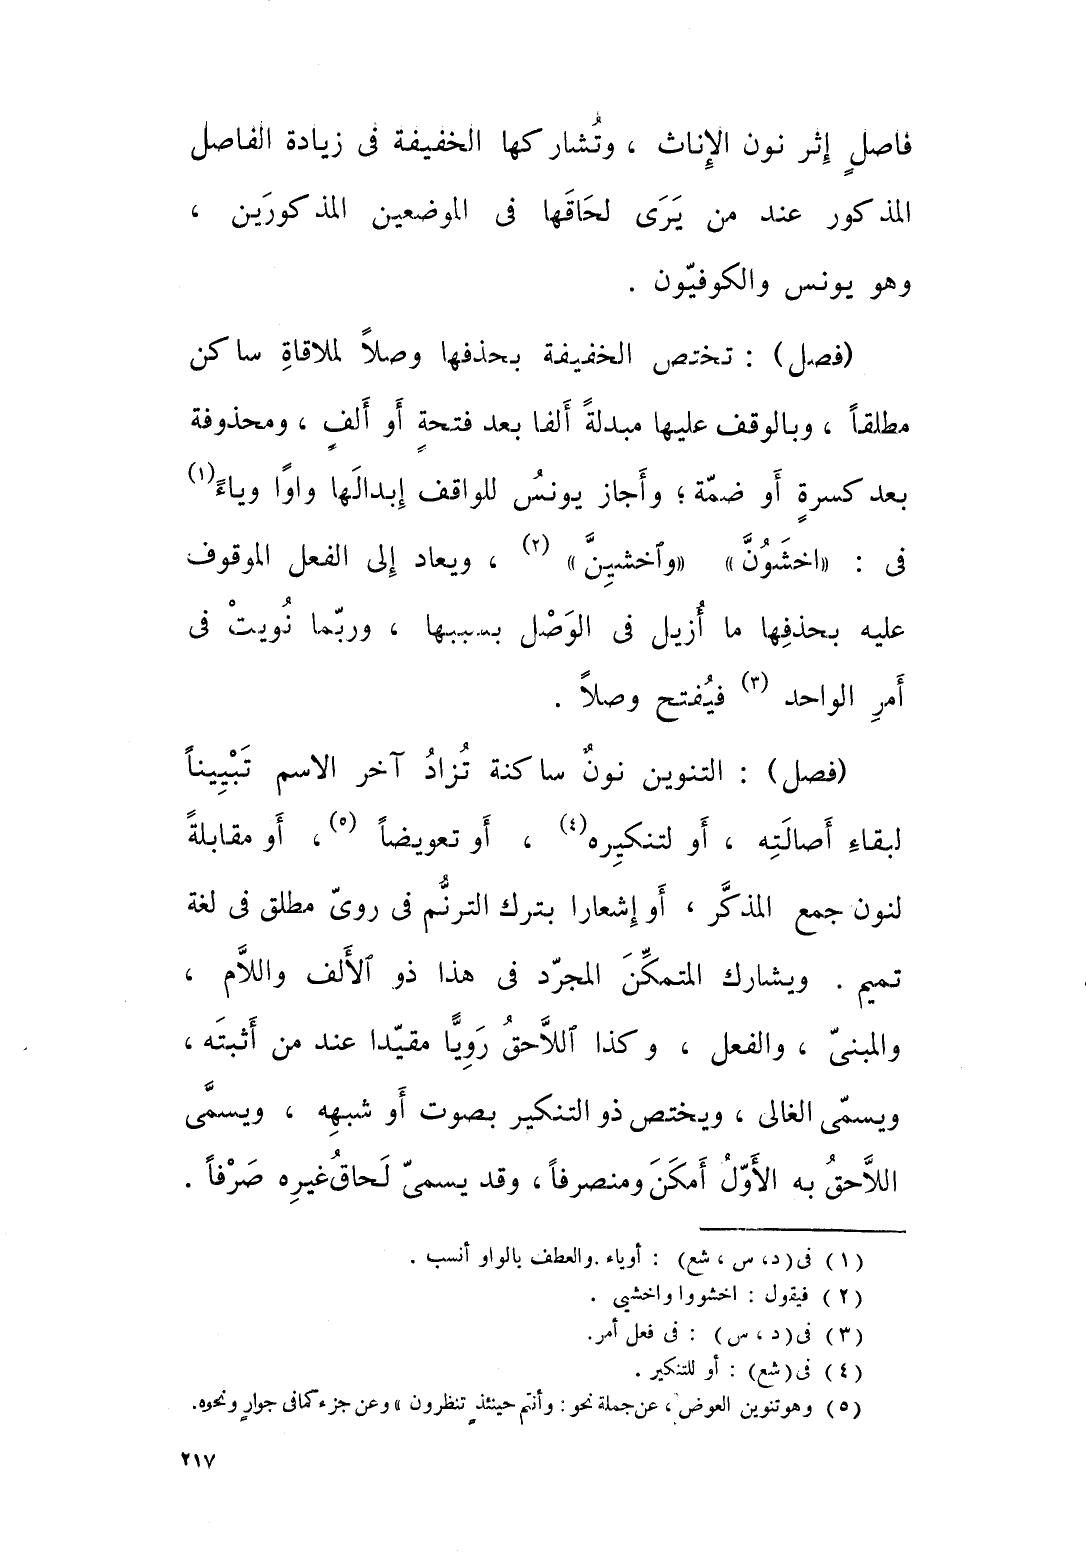 فاصلٍ إثر نون الإناث ، وتُشاركها الخفيفة فى زيادة الفاصل
المذكور عند من يَرَى لحَاقَها فى الموضعين المذكورَين ،
وهو يونس والكوفيّون .
(فصل) : تختص الخفيفة بحذفها وصلاً لملاقاةِ ساكن
مطلقاً ، وبالوقف عليها مبدلةً ألفا بعد فتحةٍ أَو أَلفٍ ، ومحذوفة
بعد كسرةٍ أَو ضمّة ؛ وأَجاز يونسُ للواقف إبدالَها واوًا وياءً (١)
فى : «اخشَوُنَّ» «وٱخشيِنَّ» (٢) ، ويعاد إلى الفعل الموقوف
عليه بحذفِها ما أُزيل فى الوَصْل بسببها ، وربّما نُويتْ فى
أَمرِ الواحد (٣) فيُفتح وصلاً .
(فصل) : التنوين نونٌ ساكنة تُزادُ آخر الاسم تَبْيِيناً
لبقاءِ أَصالَتِه ، أَو لتنكيِره (٤) ، أَو تعويضاً (٥) ، أَو مقابلةً
لنون جمع المذكَّر ، أَو إشعارا بترك الترنُّم فى روىّ مطلق فى لغة
تميم . ويشارك المتمكِّنَ المجرّد فى هذا ذو ٱلأَلف واللاَّم ،
والمبنىّ ، والفعل ، وكذا ٱللاَّحقُ رَوِيًّا مقيّدا عند من أَثبتَه ،
ويسمّى الغالى ، ويختص ذو التنكير بصوت أَو شبهِه ، ويسمَّى
اللاَّحقُ به الأَوّلُ أَمكَنَ ومنصرفاً ، وقد يسمىّ لَحاقُ غيرِه صَرْفاً .
(١) فى (د، س ، شع) : أوياء .والعطف بالواو أنسب .
(٢) فيقول : اخشووا واخشيى .
(٣) فى (د ، س) : فى فعل أمر.
(٤) فى (شع) : أو للتنكير .
(٥) وهوتنوين العوض ، عن جملة نحو : وأنتم حينئذٍ تنظرون » وعن جزء كما فى جوارٍ ونحوه.
٢١٧